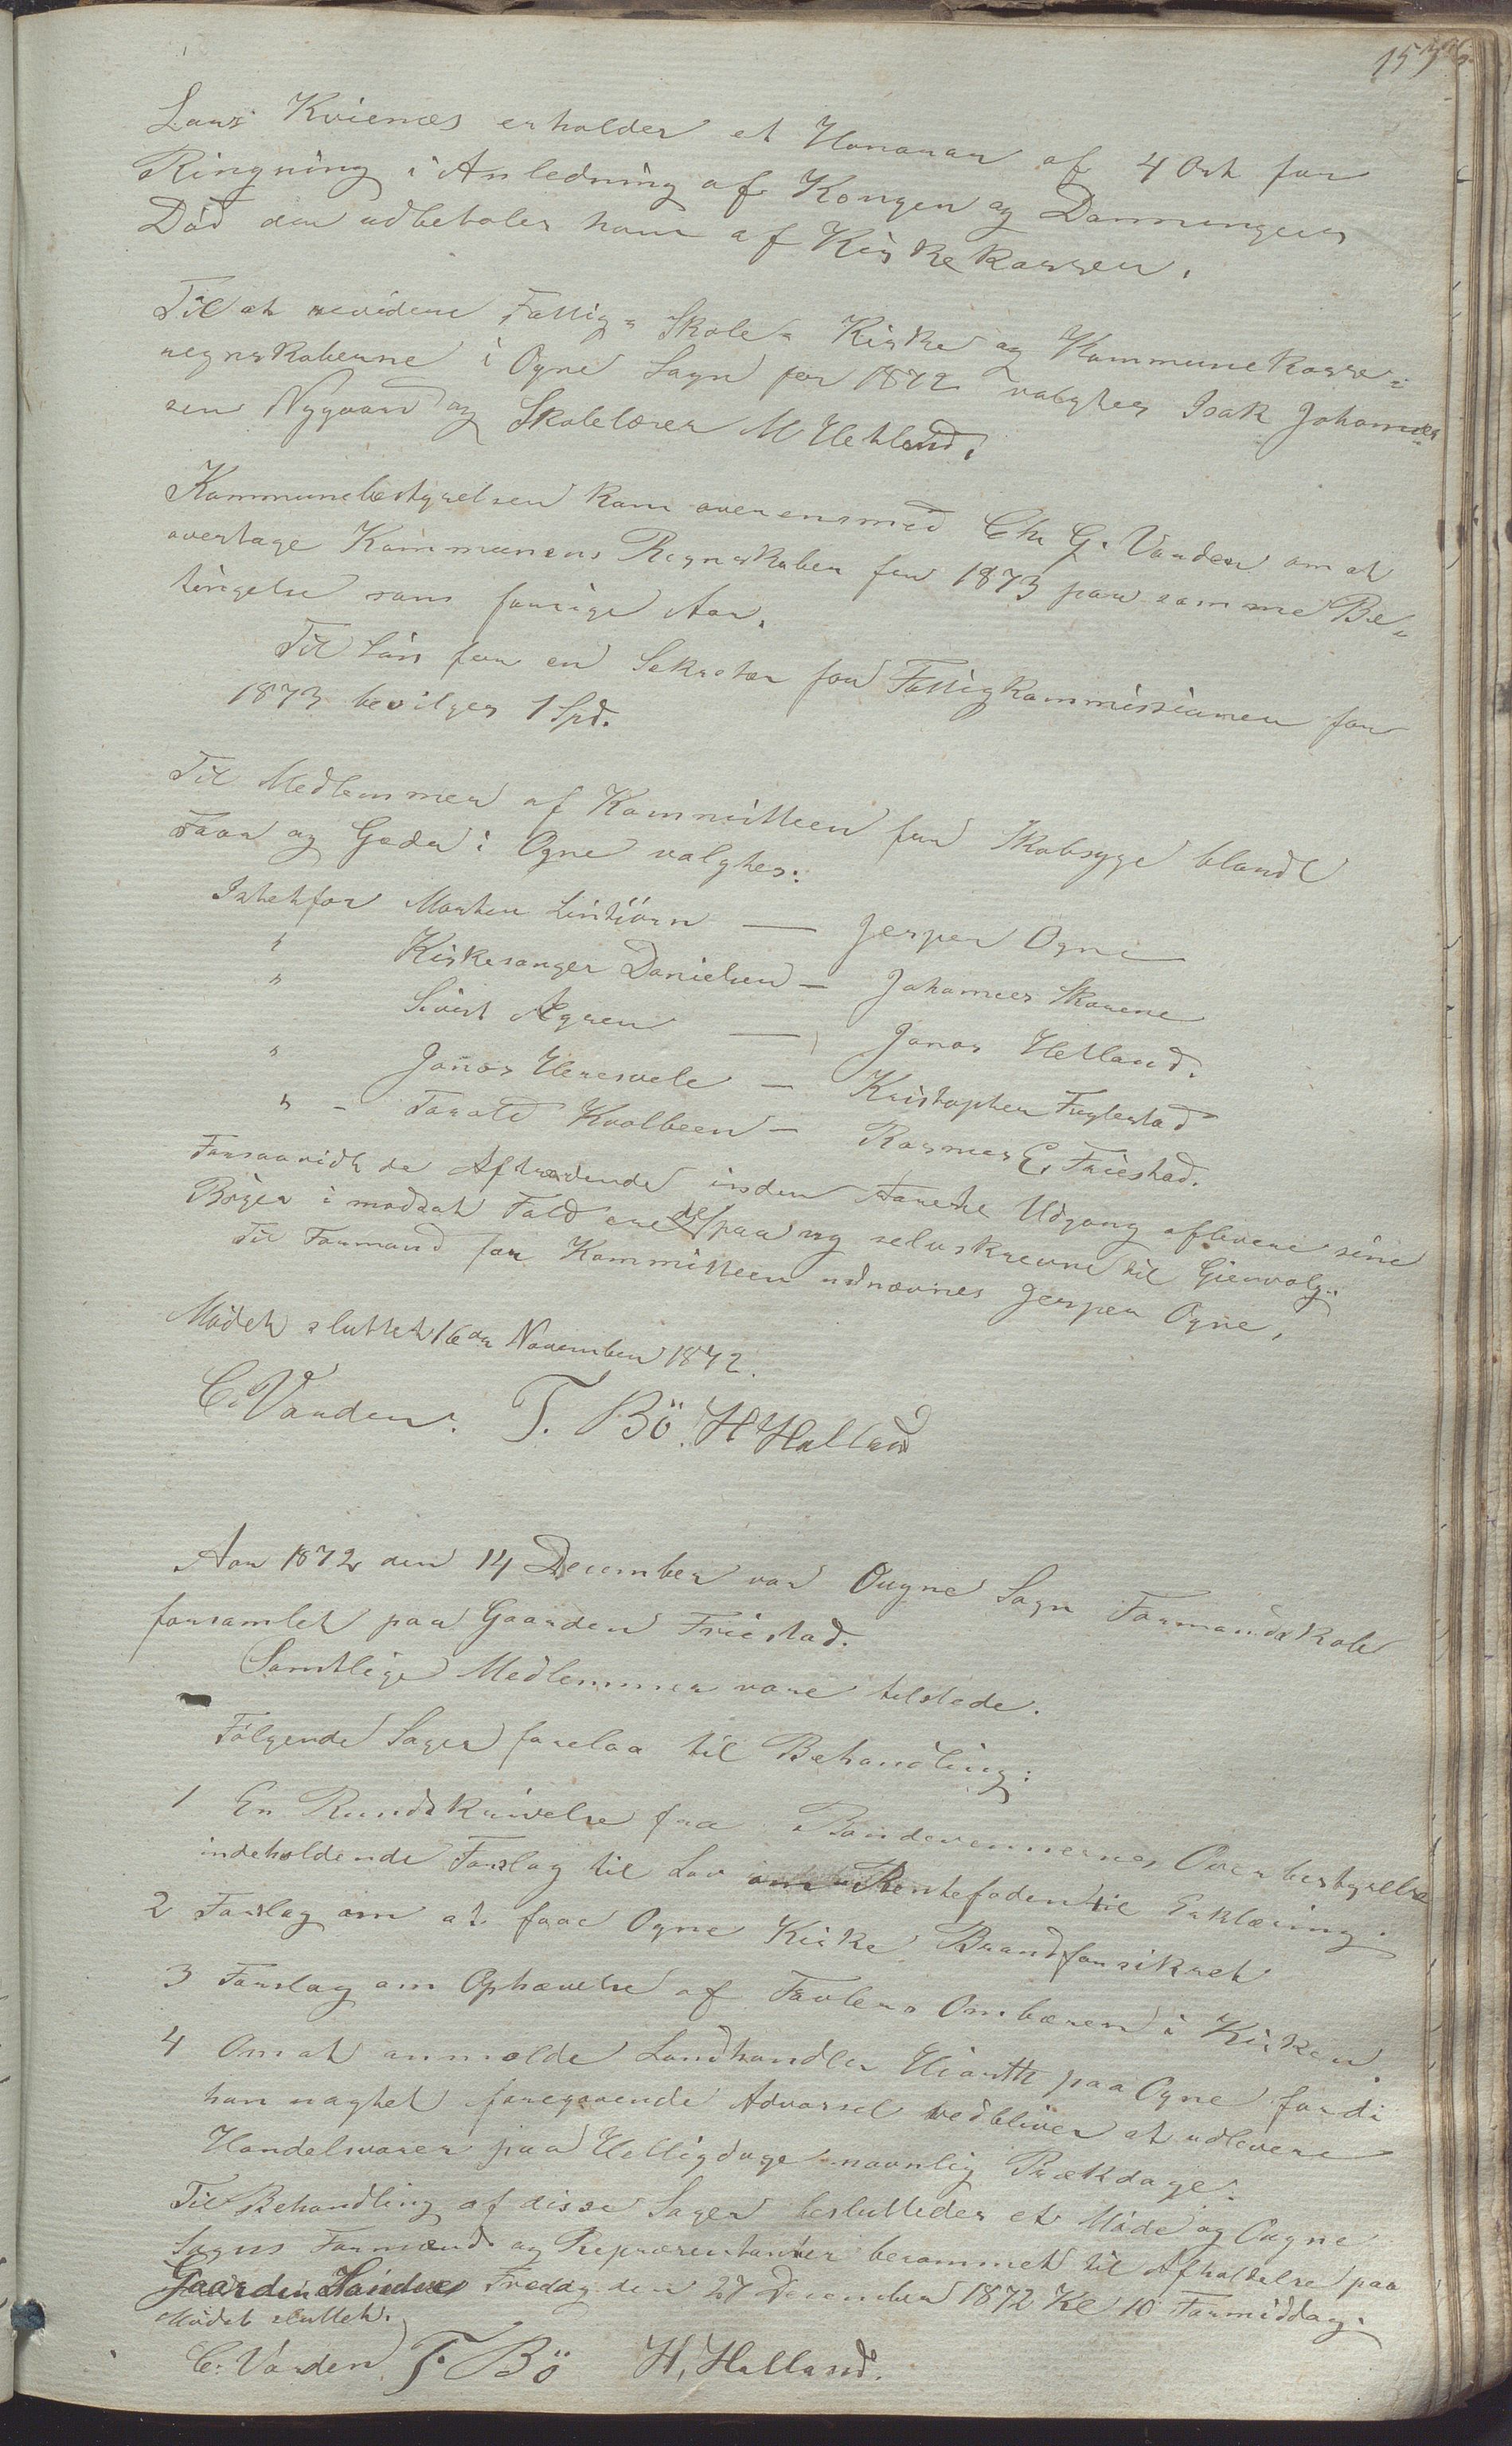 Lars Kvienes erholder et Honorar af 4 Ort for
Ringning i Anledning af Kongen og Dronningens
Død der udbetales ham af Kirkekassen.
Til at revidere Fattig- Skole- Kirke og Kommunekasse-
regnskaberne i Ogne Sogn for 1872 valgtes Isak Johannes
sen Nygaard og Skolelærer M Hetland.
Kommunebestyrelsen kom overens med Chr G. Varden om at
overtage Kommunens Regnskaber for 1873 paa samme Be-
tingelse som forrige Aar.
Til Løn for en Sekretær for Fattigkommissionen for
1873 bevilges 1 Spd.
Til Medlemmer af Kommitteen for Skabsyge blandt
Faar og Geder i Ogne valgtes:
Istetfor Morten Lintjørn — Jesper Ogne
" Kirkesanger Danielsen — Johannes Skarene
" Sivert — Jonas Hetland.
" Jonas Heresvele — Kristopher Fuglestad
" - Torald Kvalbeen — Rasmus E. Friestad.
Forsaavidt de Aftrædende inden Aarets Udgang aflevere sine
Bøger i modsat Fald ere de paa ny selvskrevne til Gjenvalg.
Til Formand for Kommitteen udnævnes Jesper Ogne.
Mødet sluttet 16de November 1872.
C. Varden. T. Bö. H Halland
Aar 1872 den 14 December var Ougne Sogn Formandskab
forsamlet paa Gaarden Friestad.
Samtlige Medlemmer vare tilstede.
Følgende Sager forelaa til Behandling:
1 En Rundskrivelse fra Bondevennernes Overbestyrelse
indeholdende Forslag til Lov om Rentefoden til Erklæring.
2 Forslag om at faae Ogne Kirke Brandforsikret
3 Forslag om Ophævelse af Tavlens Ombæren i Kirken.
4 Om at anmelde Landhandler paa Ogne fordi
han uagtet foregaaende Advarsel vedbliver at udlevere
Handelsvarer paa Helligdage navnlig Prækdage.
Til Behandling af disse Sager besluttedes et Møde og Ougne
Sogns Formænd og Repræsentanter berammet til Afholdelse paa
Gaarden Fredag den 27 December 1872 Kl 10 Formiddag.
Mødet sluttet.
C. Varden T. Bö H. Halland.